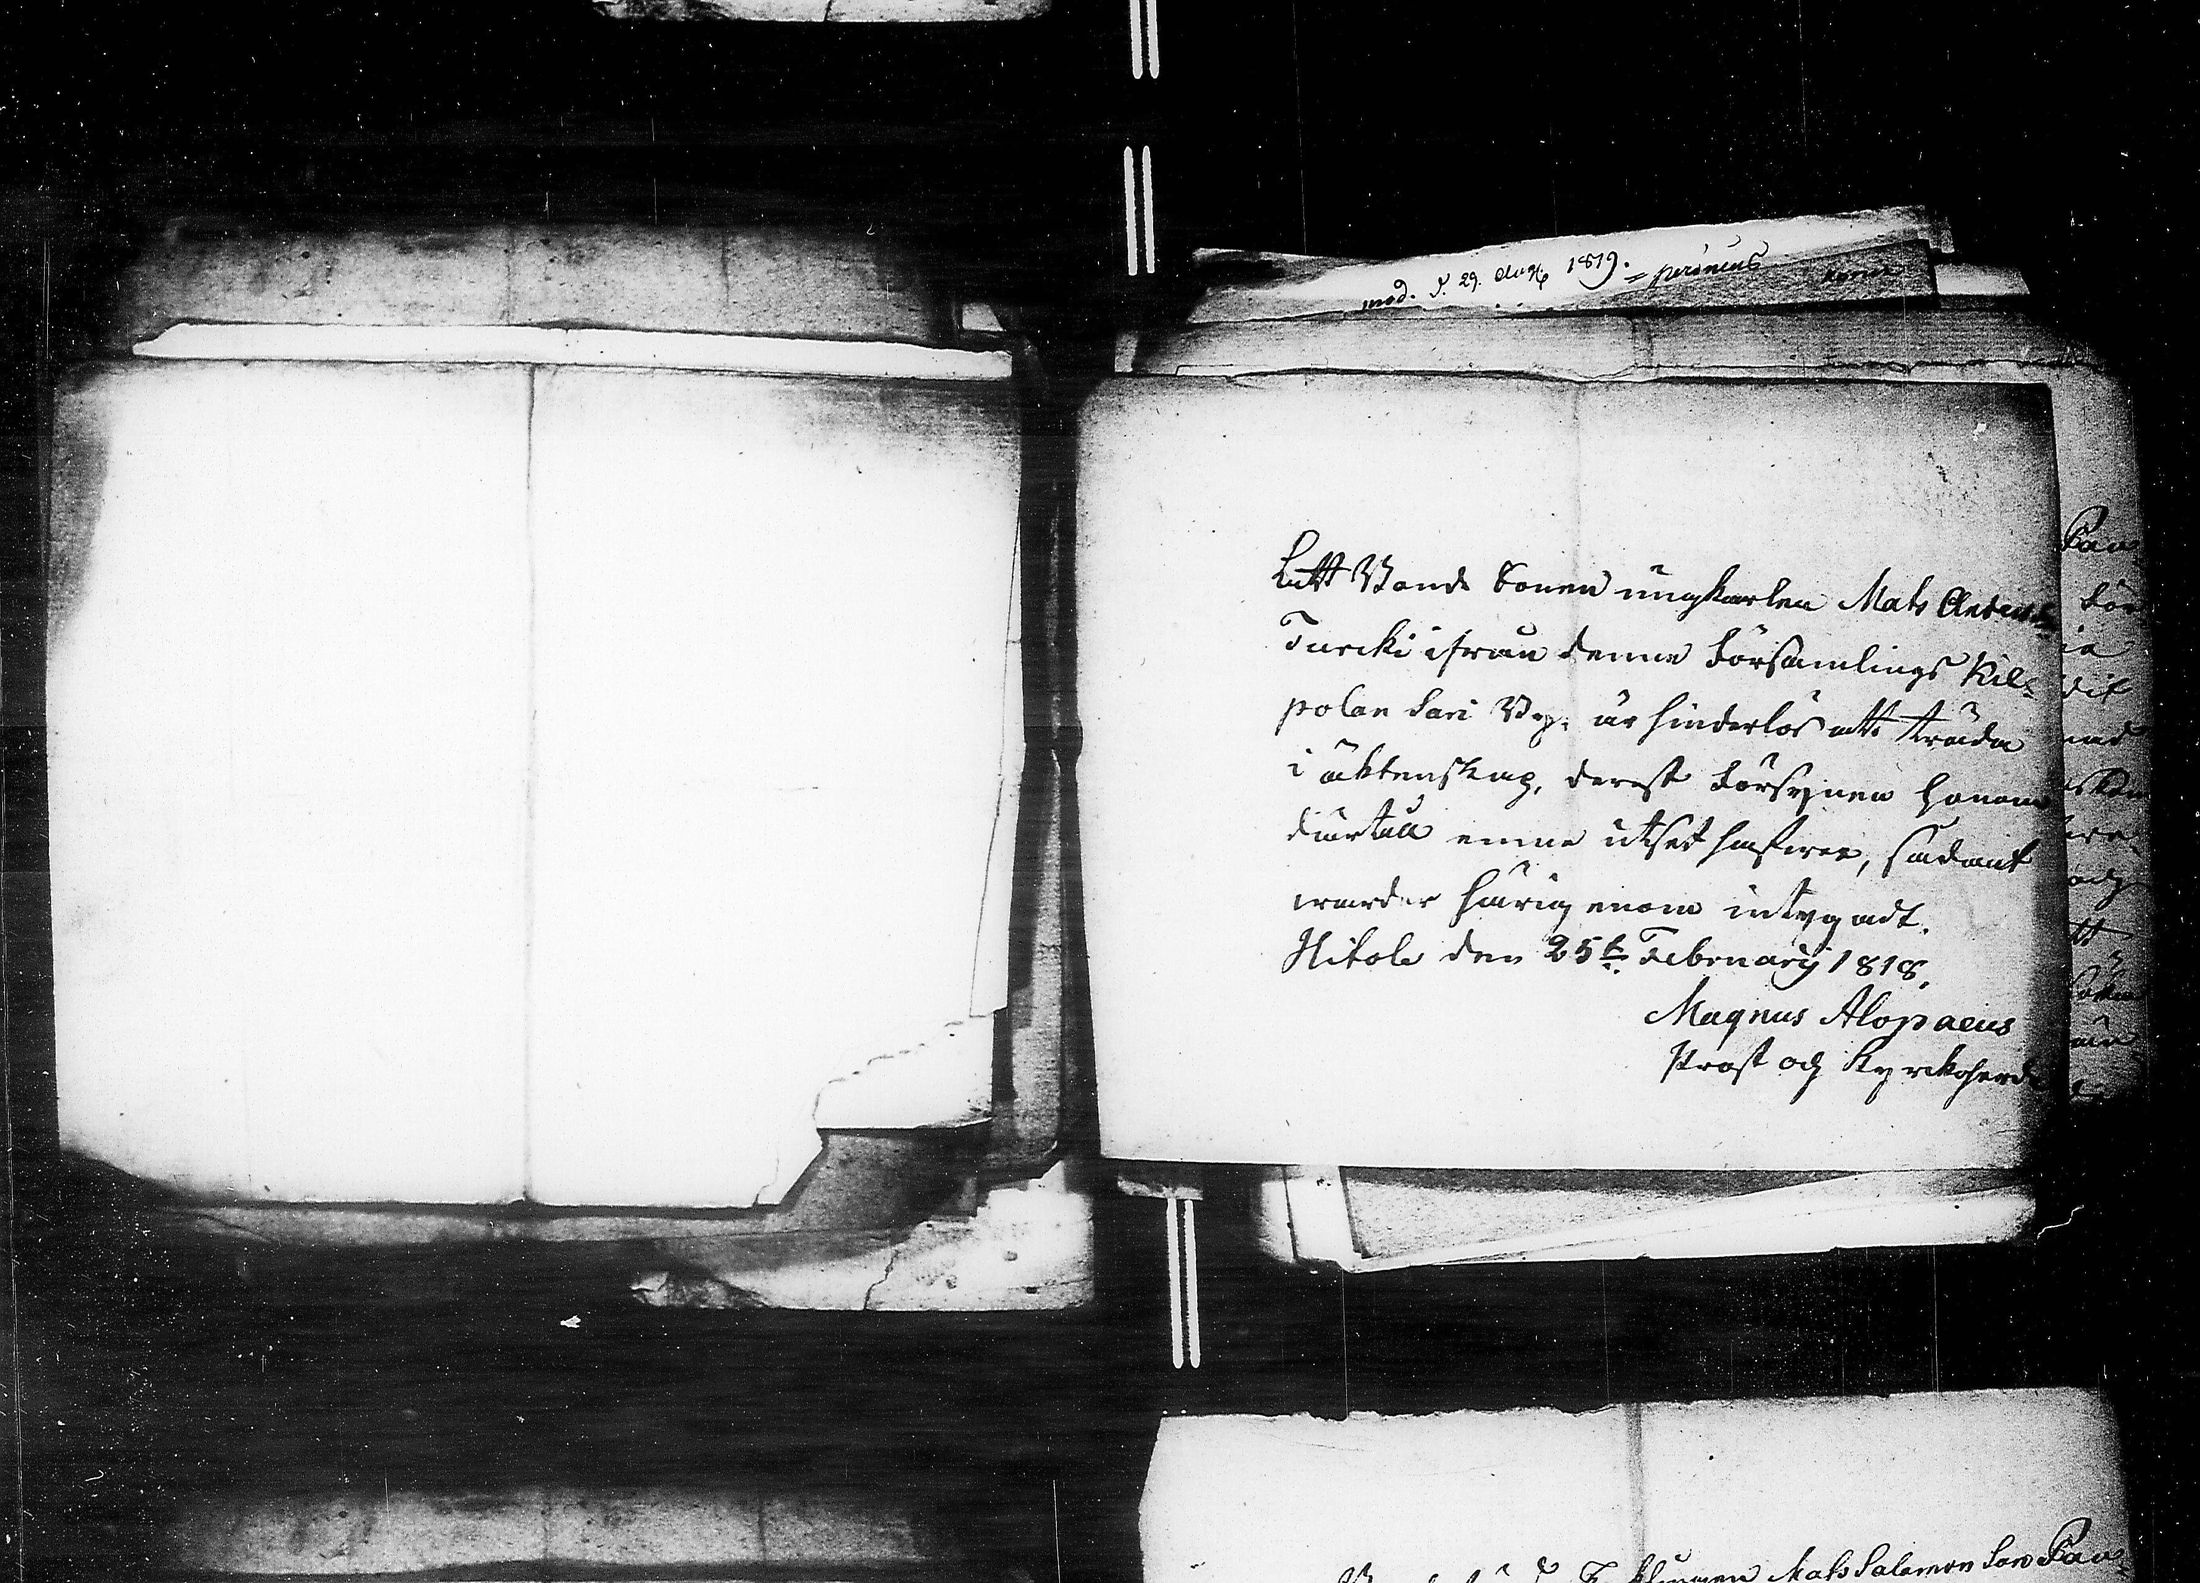 mod. d. 29. Aug. 1819.
Att Bonde Sonen ungkarlen Mats Anders
Turcki ifrån denne Församlings Kil=
polan Sari By. är hinderlös att träda
i äktenskap, derest Försynen honom
därtill emne utset hafwer, sådant
warder härigenom intygadt.
Hitola den 25te Februarij 1818.
Magnus Alopaeus
Prost och Kyrckoherde
Pau
ie
Mats Salomon Son Pau